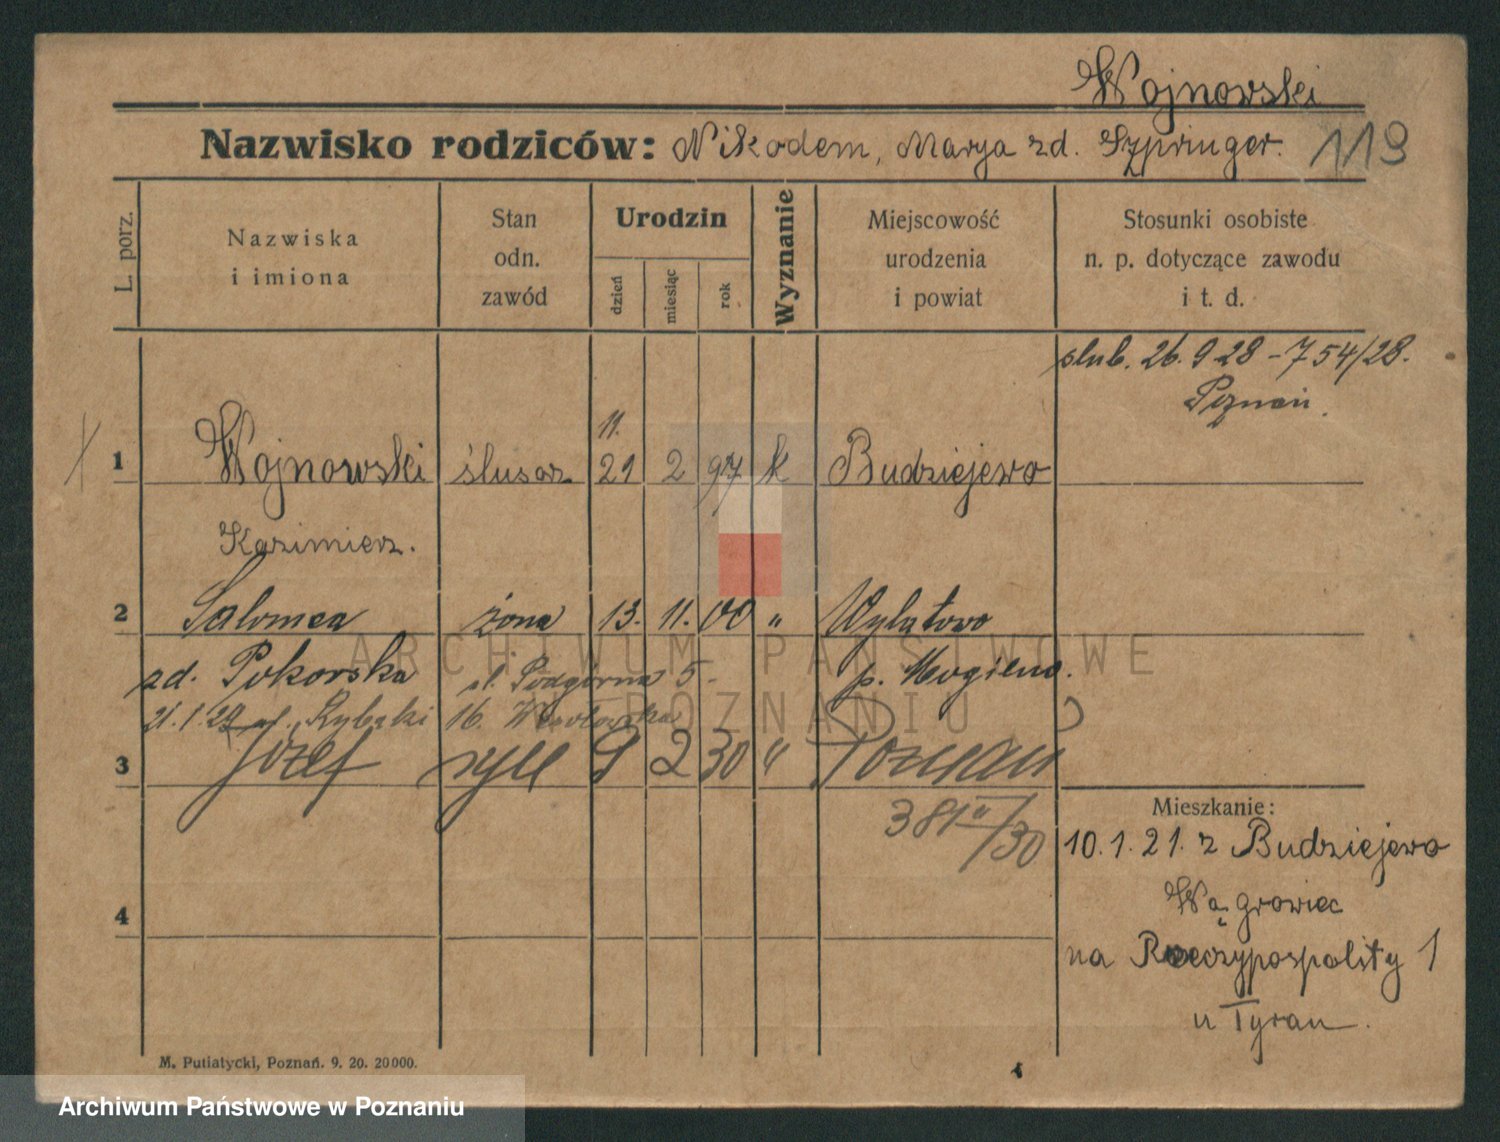 Wojnowski
Nazwisko rodziców: Nikodem, Marya zd. Szpringer. 119
L. porz.
Nazwiska i imiona
Stan odn. zawód
Urodzin
dzień
miesiąc
rok
Wyznanie
Miejscowość urodzenia i powiat
Stosunki osobiste n. p. dotyczące zawodu i t. d.
slub. 26. 9 28 - 754/28.
Poznań.
11.
1 Wojnowski ślusarz 21 2 97 k Budziejewo
Kazimierz.
2 Salomea żona 13. 11. 00 " Wylątowo
zd. Pokorska ul. Podgórna 5 p. Mogilno.
21.1.29 Rybaki 16.
3 Józef syn 9 2 30 " Poznań
381 II/30
Mieszkanie:
10. 1. 21. z Budziejewo
Wągrowiec
na Rzeczypospolity 1
u Tyran.
4
M. Putiatycki, Poznań. 9. 20. 20000.
ARCHIWUM PAŃSTWOWE
W POZNANIU
Archiwum Państwowe w Poznaniu